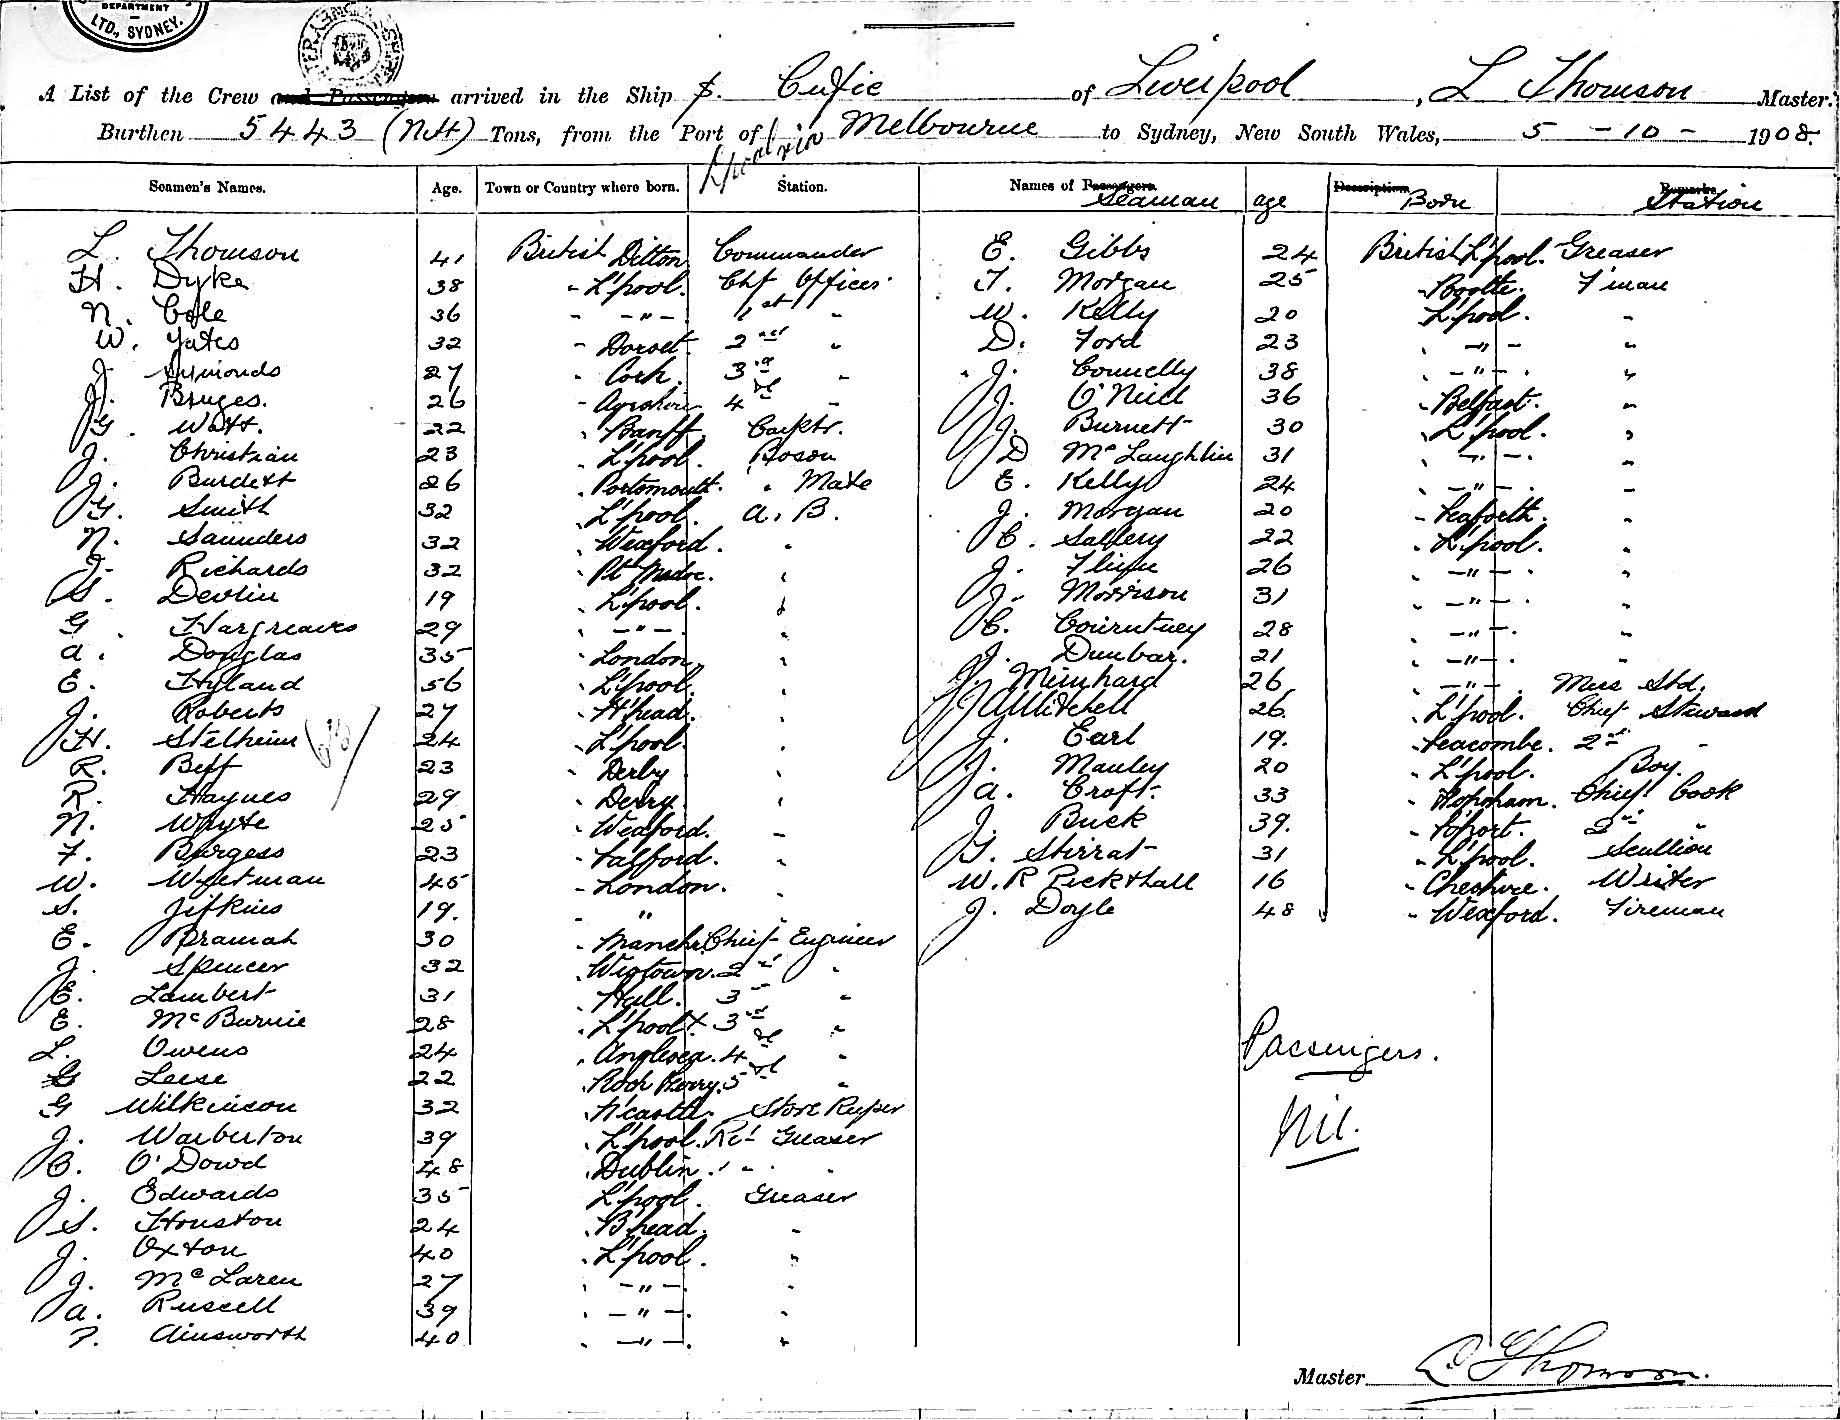 DEPARTMENT
LTD., SYDNEY.
A List of the Crew and Passengers arrived in the Ship Cufic of Liverpool, L Thomson Master.
Burthen 5443 (Nett) Tons, from the Port of L'pool via Melbourne to Sydney, New South Wales, 5-10-1908.
Seamen's Names. Age. Town or Country where born. Station. Names of Passengers. Seaman age Description Born Remarks Station
L. Thomson 41 British Ditton Commander E. Gibbs 24 British L'pool. Greaser
H. Dyke 38 " L'pool. Chf Officer T. Morgan 25 " Bootle. F'man
N. Cole 36 " -"- 1st " W. Kelly 20 L'pool. "
W. Yates 32 " Dorset. 2nd " D. Ford 23 " -"- "
J. Symonds 27 " Cork. 3rd " J. Connelly 38 " -"- "
J. Bruges. 26 " Ayrshire 4th " J. O'Neill 36 " Belfast. "
G. Watt. 22 " Banff. Carptr. J. Burnett 30 " L'pool. "
J. Christian 23 " L'pool. Boson D McLaughlin 31 " -"- "
J. Burdett 26 " Portsmouth. " Mate E. Kelly 24 " -"- "
G. Smith 32 " L'pool. A. B. J. Morgan 20 " Seaforth. "
N. Saunders 32 " Wexford. " C. Sallery 22 " L'pool. "
J. Richards 32 " Pt Madoc. " J. 26 " -"- "
S. Devlin 19 " L'pool. " J. Morrison 31 " -"- "
G. Hargreaves 29 " -"- " C. Courntney 28 " -"- "
A. Douglas 35 " London. " J. Dunbar. 21 " -"- "
E. Hyland 56 " L'pool. " J. Meinhard 26 " -"- Mess Std.
J. Roberts 27 " B'head. " J A Mitchell 26. " L'pool. Chief Steward
H. Stelheim 24 " L'pool. " J. Earl 19. " Seacombe. 2nd "
R. Beff 23 " Derby " J. Manley 20 " L'pool. Boy.
R. Haynes 29 " Derry. " A. Croft. 33 " Chief Cook
N. Whyte 25 " Wexford. " J. Buck 39. " S'port. 2nd "
F. Burgess 23 " Salford. " G. Stirrat 31 " L'pool. Scullion
W. 45 " London. " W. R Pickthall 16 " Cheshire. Writer
S. Jifkins 19. " " " J. Doyle 48 " Wexford. Fireman
E. Bramah 30 " Manchr. Chief Engineer
J. Spencer 32 " Wigtown. 2nd "
E. Lambert 31 " Hull. 3 "
E. McBurnie 28 " L'pool. X 3rd "
L. Owens 24 " Anglesea. 4th "
G Leese 22 " Rock Ferry. 5th "
G Wilkinson 32 " N'castle. Store Keeper
J. Warberton 39 " L'pool. Greaser
C. O'Dowd 48 " Dublin. " "
J. Edwards 35 " L'pool. Greaser
S. Houston 24 " B'head. "
J. Oxton 40 " L'pool. "
J. McLaren 27 " -"- "
A. Russell 39 " -"- "
P. Ainsworth 40 " -"- "
Passengers.
Nil.
Master L Thomson.